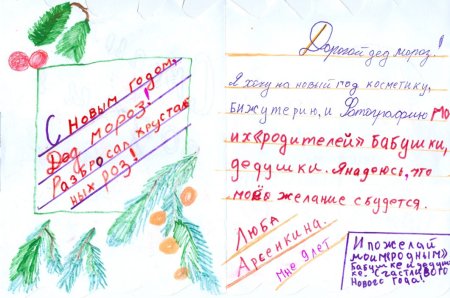 С новым годом,
Дед мороз!
Разбросал хрусталь
ных роз!
Дорогой дед мороз!
Я хочу на новый год косметику,
бижутерию, и фотографию мо
их «родителей» бабушки,
дедушки. Я надеюсь, что
моё желание сбудется.
Люба
Арсенкина.
мне 9 лет
И пожелай
моим «родным»
бабушке и дедуш
ке. Счастливого
Нового года!